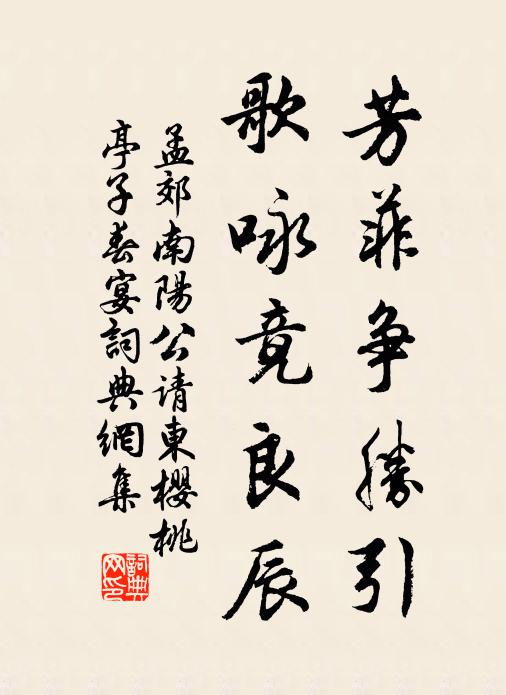 芳菲争勝引
歌咏竟良辰
孟郊南陽公请東櫻桃
亭子春宴詞典網集
詞典
网印